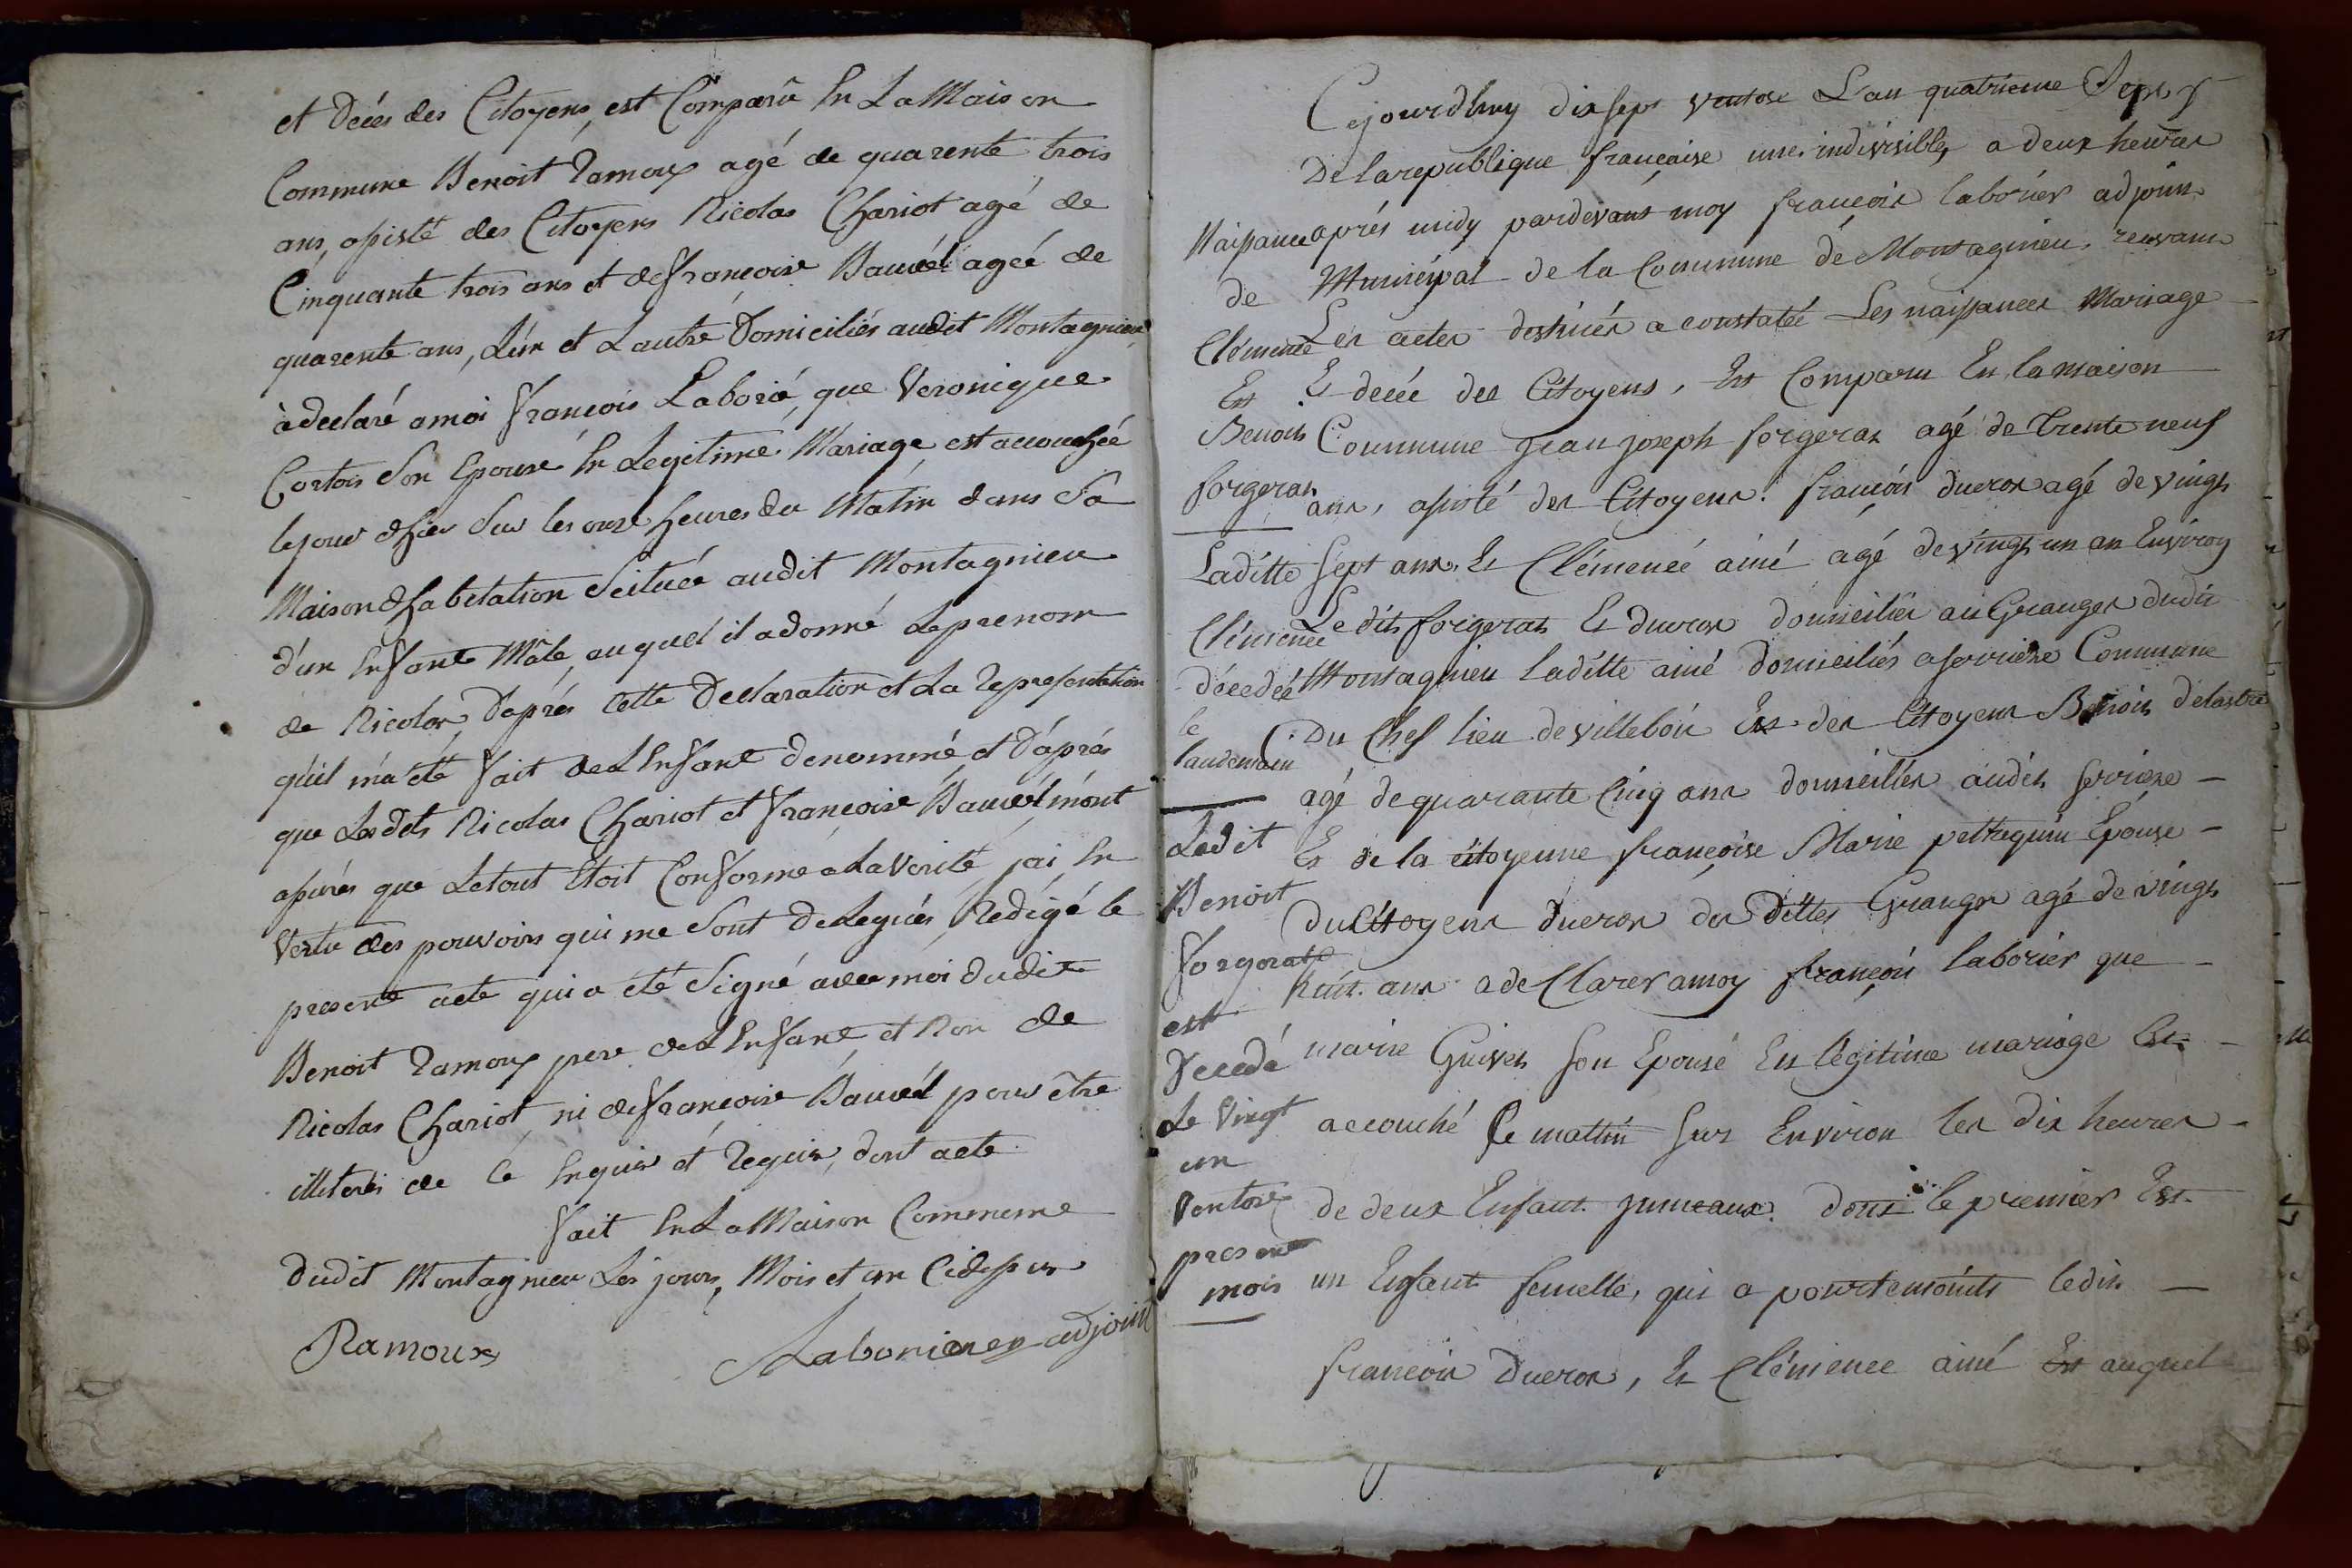 et Décés des Citoyens, est Comparû En La Maison
Commune Benoit Ramoux agé de quarente trois
ans, assisté des Citoyens Nicolas Chariot agé de
Cinquante trois ans et de françoise Bauvél agée de
quarente ans, L'un et L'autre Domiciliés audit Montagnieu
à declaré amoi françois Laborié, que Veronique
Cortois Son Epouse En Legitime Mariage est accouchée
le jour d'hier Sur les onze heures du Matin dans Sa
Maison d'habitation Scituée audit Montagnieu
d'un Enfant Mâle, auquel il a donné Le prenom
de Nicolas, D'après Cette Declaration et La Representation
qu'il m'a été fait de L'Enfant denommé, et D'après
que Lesdits Nicolas Chariot et françoise Bauvél m'ont
assurés que Le tout Etoit Conforme a La Verité, j'ai En
Vertu des pouvoirs qui me Sont Delegués, Redigé le
present acte qui a été Signé avec moi dudit
Benoit Ramoux pere de L'Enfant, et Non de
Nicolas Chariot, ni de françoise Bauvél pour être
illiterés de Ce Enquis et Requis, dont acte
fait En La Maison Commune
dudit Montagnieu Les jours, Mois et an Cidessus
Ramoux Laborier adjoint
Cejourdhuy dix sept ventose L'an quatrieme
De la republique française une indivisible, a deux heures
après midy pardevant moy françois laborier adjoint
Municipal de la Commune de Montagnieu, recevant
Les actes destinés a constaté Les naissances Mariage
Et decée des Citoyens, Est Comparu En la maison
Commune jean joseph forgerat agé de trente neuf
ans, assisté des Citoyens françois ducros agé de vingt
Sept ans, Et Clémence aimé agé de vingt un an Environ
Le dit forgerat Et ducros domicilier au Granges dudit
Montagnieu laditte aimé domiciliés a serriere Commune
Du Chef lieu de villeboi Est des Citoyens Benoit delastre
agé de quarante Cinq ans domicilier audit serriere
Et de la Citoyenne françoise Marie pettequin Épouse
du Citoyens ducros des Dittes Granges agé de vingt
huit ans a de Clarer amoy françois laborier que
marie Guivet son Epouse En légitime mariage Est
accouché Ce mattin sur Environ les dix heures
de deux Enfant jumeaux dont le premier Est
un Enfant femelle, qui a pour temoints ledit
françois Ducros, Et Clémence aimé Est auquel
Naissance
de
Clémence
Et
Benoit
forgerat
Laditte
Clémence
décedée
le
landemain
Ledit
Benoit
forgerat
est
Decedé
Le Vingt
un
Ventose
present
mois